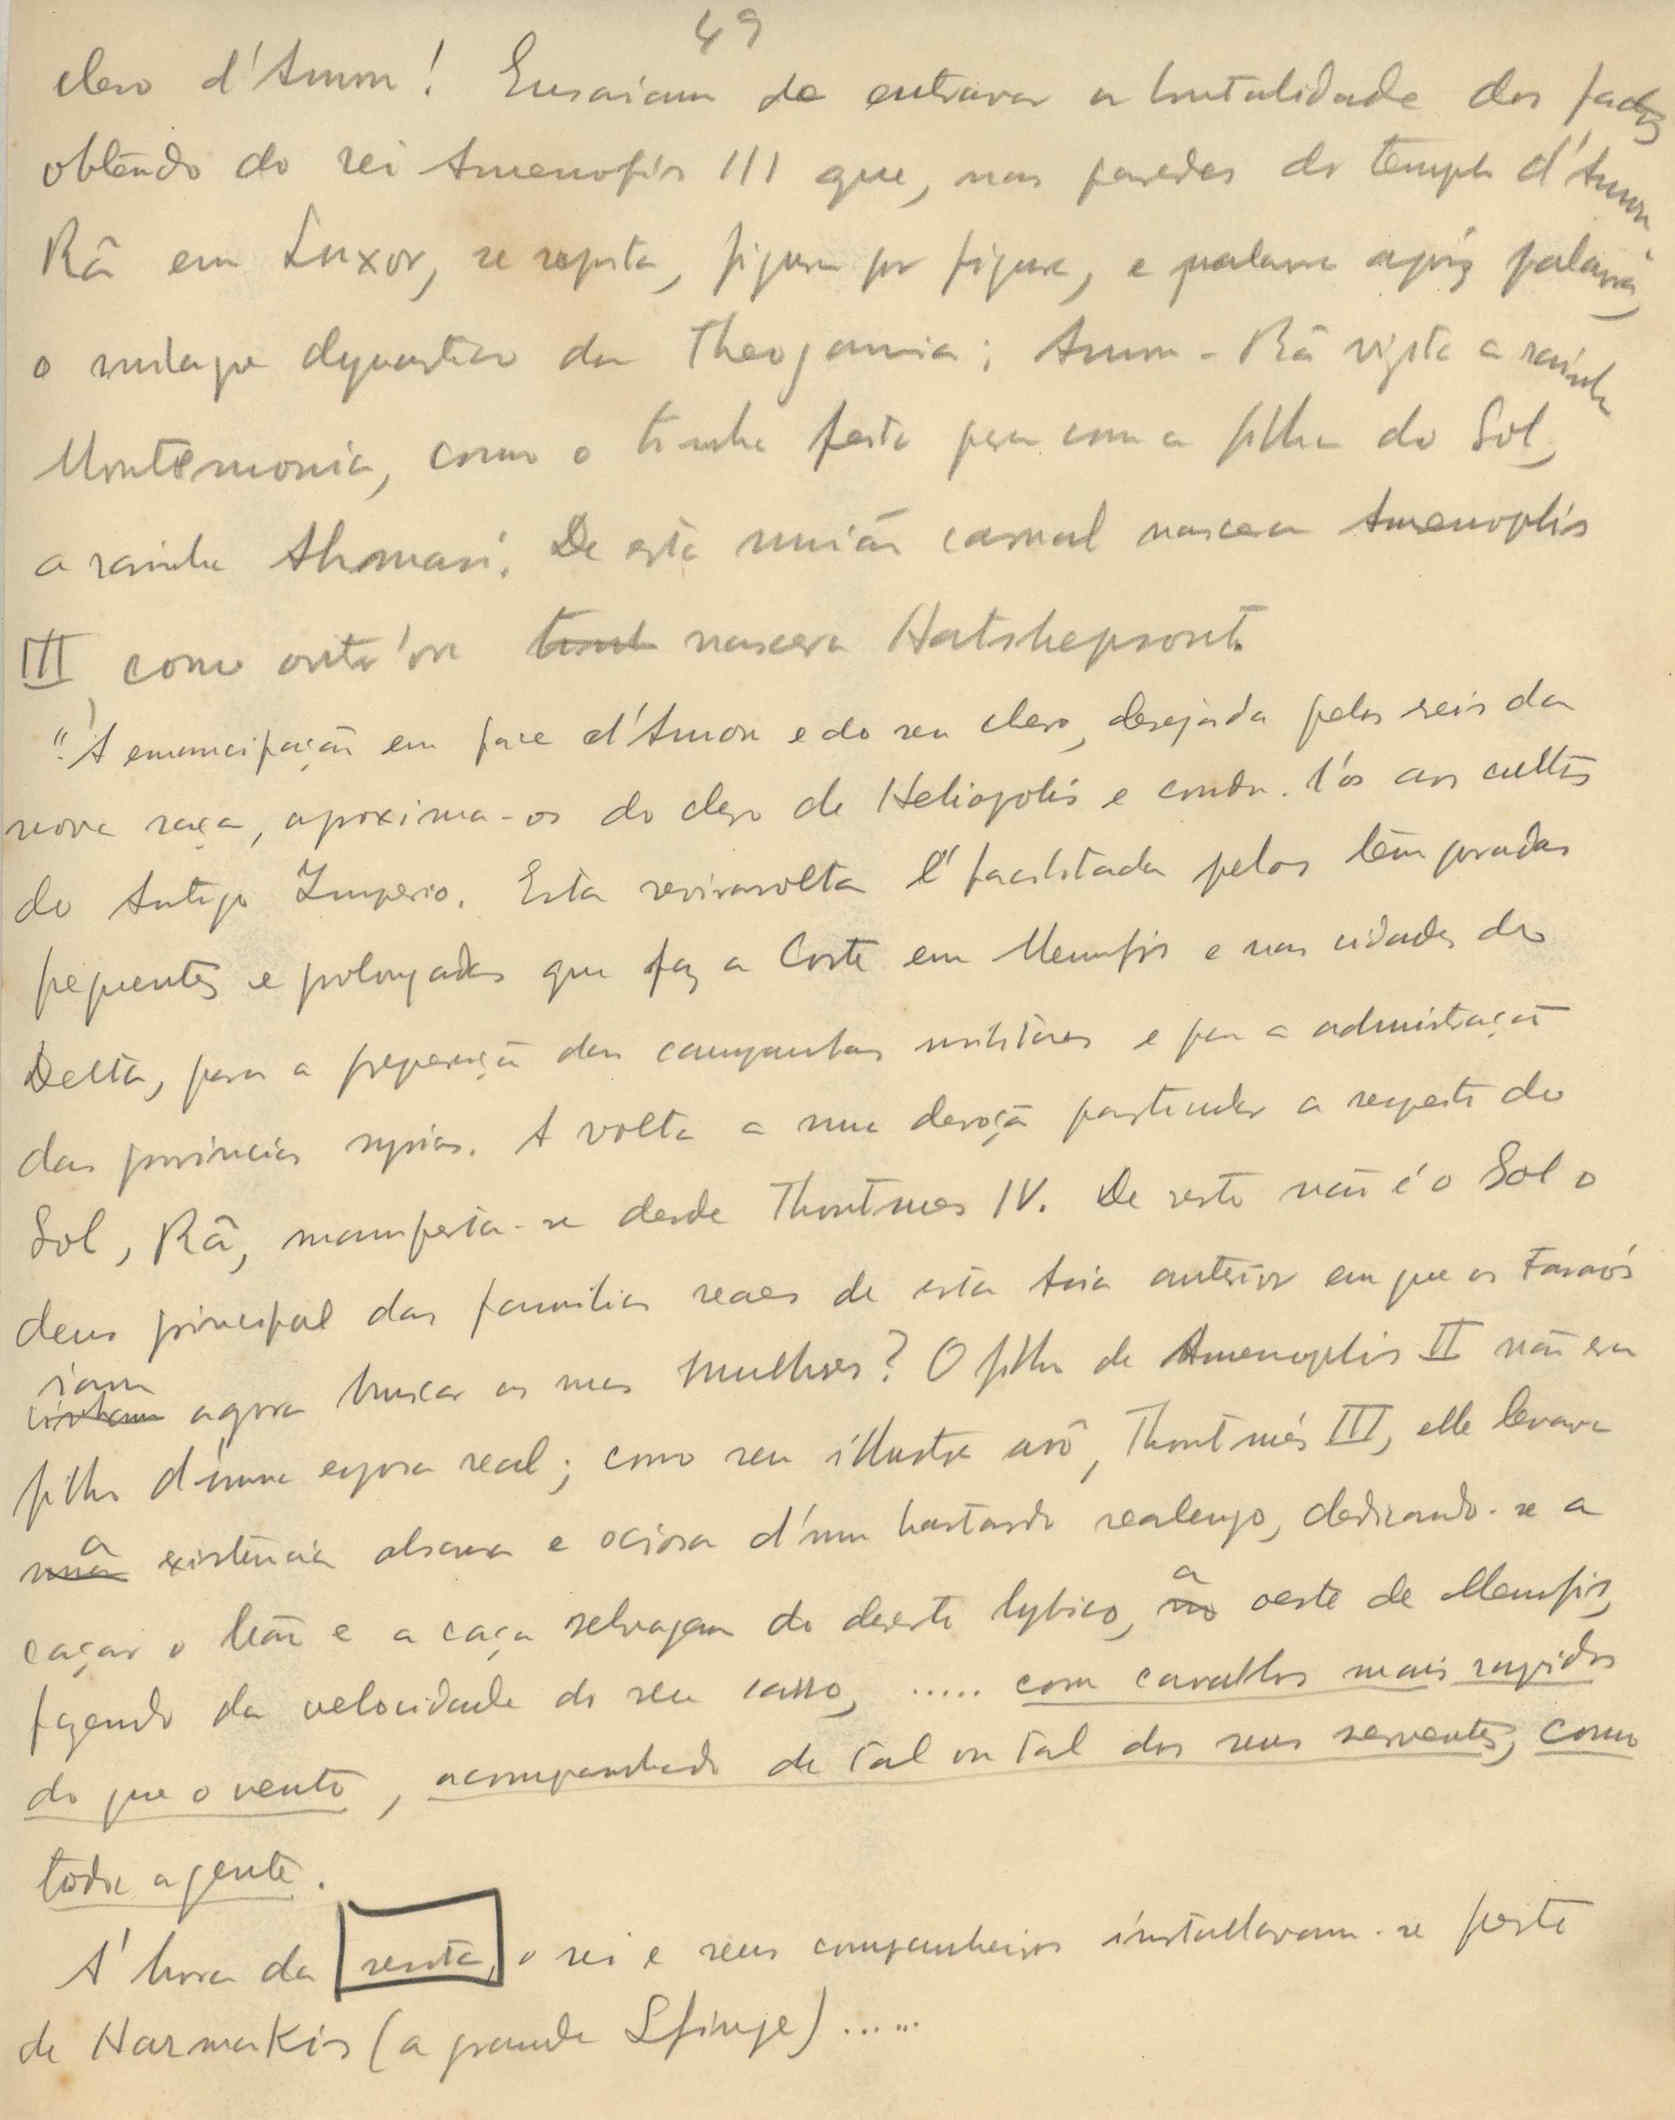 49
clero d'Amon! Ensaiam de entravar a brutalidade dos factos
obtendo do rei Amenofis III que, nas paredes do templo d'Amon
Râ em Luxor, se repita, figura por figura, e palavra após palavra,
o milagre dynastico da Theogamia; Amon-Râ visita a rainha
Moutemouia, como o tinha feito para com a filha do Sol,
a rainha Ahmasi. De esta união carnal nascera Amenophis
III, como outr'ora tinh nascera Hatshepsout.
"A emancipação em face d'Amon e do seu clero, desejada pelos reis da
nova raça, aproxima-os do clero de Heliopolis e condu-l'os aos cultos
do Antigo Imperio. Esta reviravolta é facilitada pelas temporadas
frequentes e prolongadas que faz a Corte em Memfis e nas cidades do
Delta, para a preparação das campanhas militares e para a administração
das provincias syrias. A volta a uma devoção particular a respeito do
Sol, Râ, manifesta-se desde Thoutmes IV. De resto não é o Sol o
deus principal das familias reaes de esta Asia anterior em que os Faraós
iam
vinham agora buscar as suas mulheres? O filho de Amenophis II não era
filho d'uma esposa real; como seu illustre avô, Thoutmés III, elle levava
a
uma existencia obscura e ociosa d'um bastardo realengo, dedicando-se a
caçar o leão e a caça selvagem do deserto lybico, a no oeste de Memfis,
fazendo da velocidade do seu carro, ..... com cavallos mais rapidos
do que o vento, acompanhado de tal ou tal dos seus serventes, como
toda a gente.
A' hora da sesta, o rei e seus companheiros installavam-se perto
de Harmakis (a grande Sfinge) .....